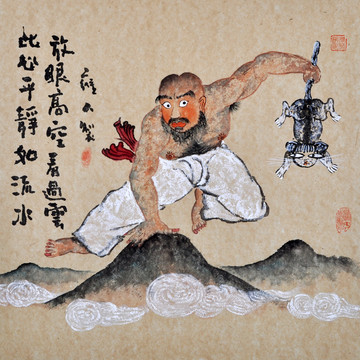 此心平靜如流水
放眼高空看過雲